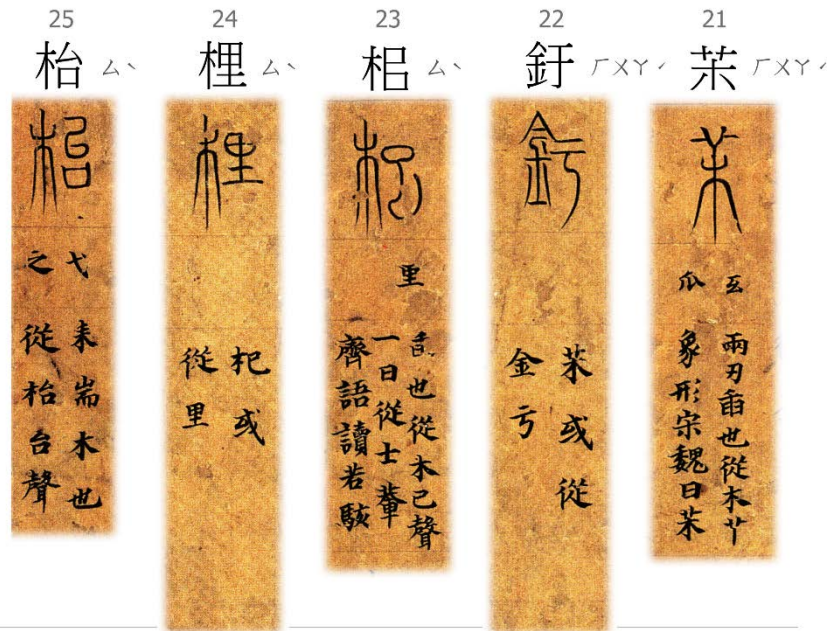 21
苿 ㄏㄨㄚˊ
互
瓜
兩刃臿也從木艹
象形宋魏曰苿
22
釪 ㄏㄨㄚˊ
苿或從
金亏
23
㭒 ㄙˋ
里
臿也從木已聲
一曰從士輂
齊語讀若駭
24
梩 ㄙˋ
杞或
從里
25
枱 ㄙˋ
弋
之
耒耑木也
從枱台聲